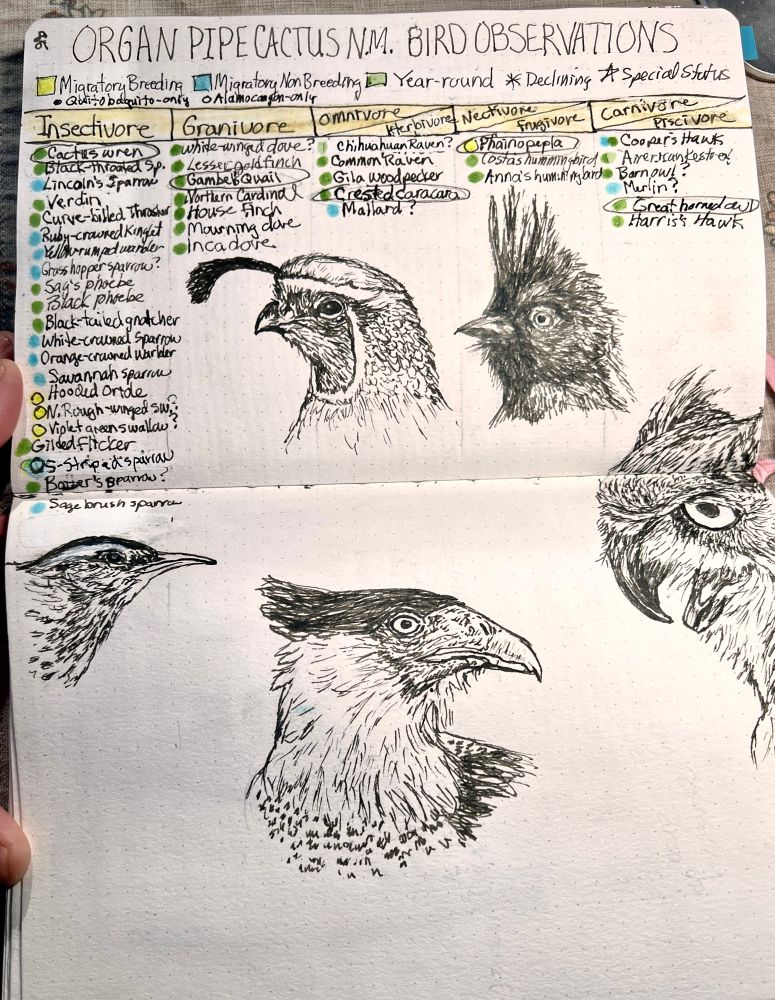 ORGAN PIPE CACTUS N.M. BIRD OBSERVATIONS
Migratory Breeding Migratory Non Breeding Year-round * Declining ☆ Special Status
• Quitobaquito-only ○ Alamo canyon-only
Insectivore
Cactus wren
Black-throated Sp.
Lincoln's Sparrow
Verdin
Curve-billed Thrasher
Ruby-crowned Kinglet
Yellow-rumped warbler
Grasshopper sparrow?
Say's phoebe
Black phoebe
Black-tailed gnatcher
White-crowned Sparrow
Orange-crowned Warbler
Savannah sparrow
Hooded Oriole
N. Rough-winged sw.?
Violet green swallow?
Gilded Flicker
5-striped sparrow
Botteri's Sparrow?
Sagebrush sparrow
Granivore
White-winged dove?
Lesser goldfinch
Gambel's Quail
Northern Cardinal
House Finch
Mourning dove
Inca dove
Omnivore
Herbivore
Chihuahuan Raven?
Common Raven
Gila woodpecker
Crested caracara
Mallard?
Nectivore
Frugivore
Phainopepla
Costa's hummingbird
Anna's hummingbird
Carnivore
Piscivore
Cooper's Hawk
American kestrel
Barn owl?
Merlin?
Great horned owl
Harris's Hawk